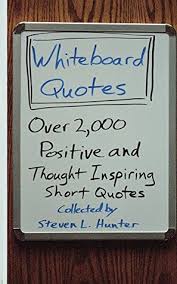 Whiteboard
Quotes
Over 2,000
Positive and
Thought Inspiring
Short Quotes
Collected by
Steven L. Hunter